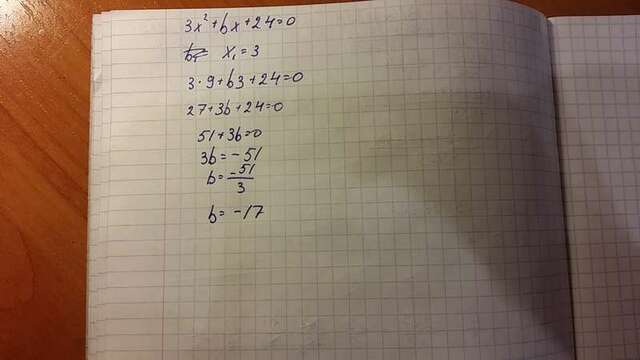 3x²+bx+24=0
x=3
3·9+b3+24=0
27+3b+24=0
51+3b=0
3b=-51
b=-51/3
b=-17